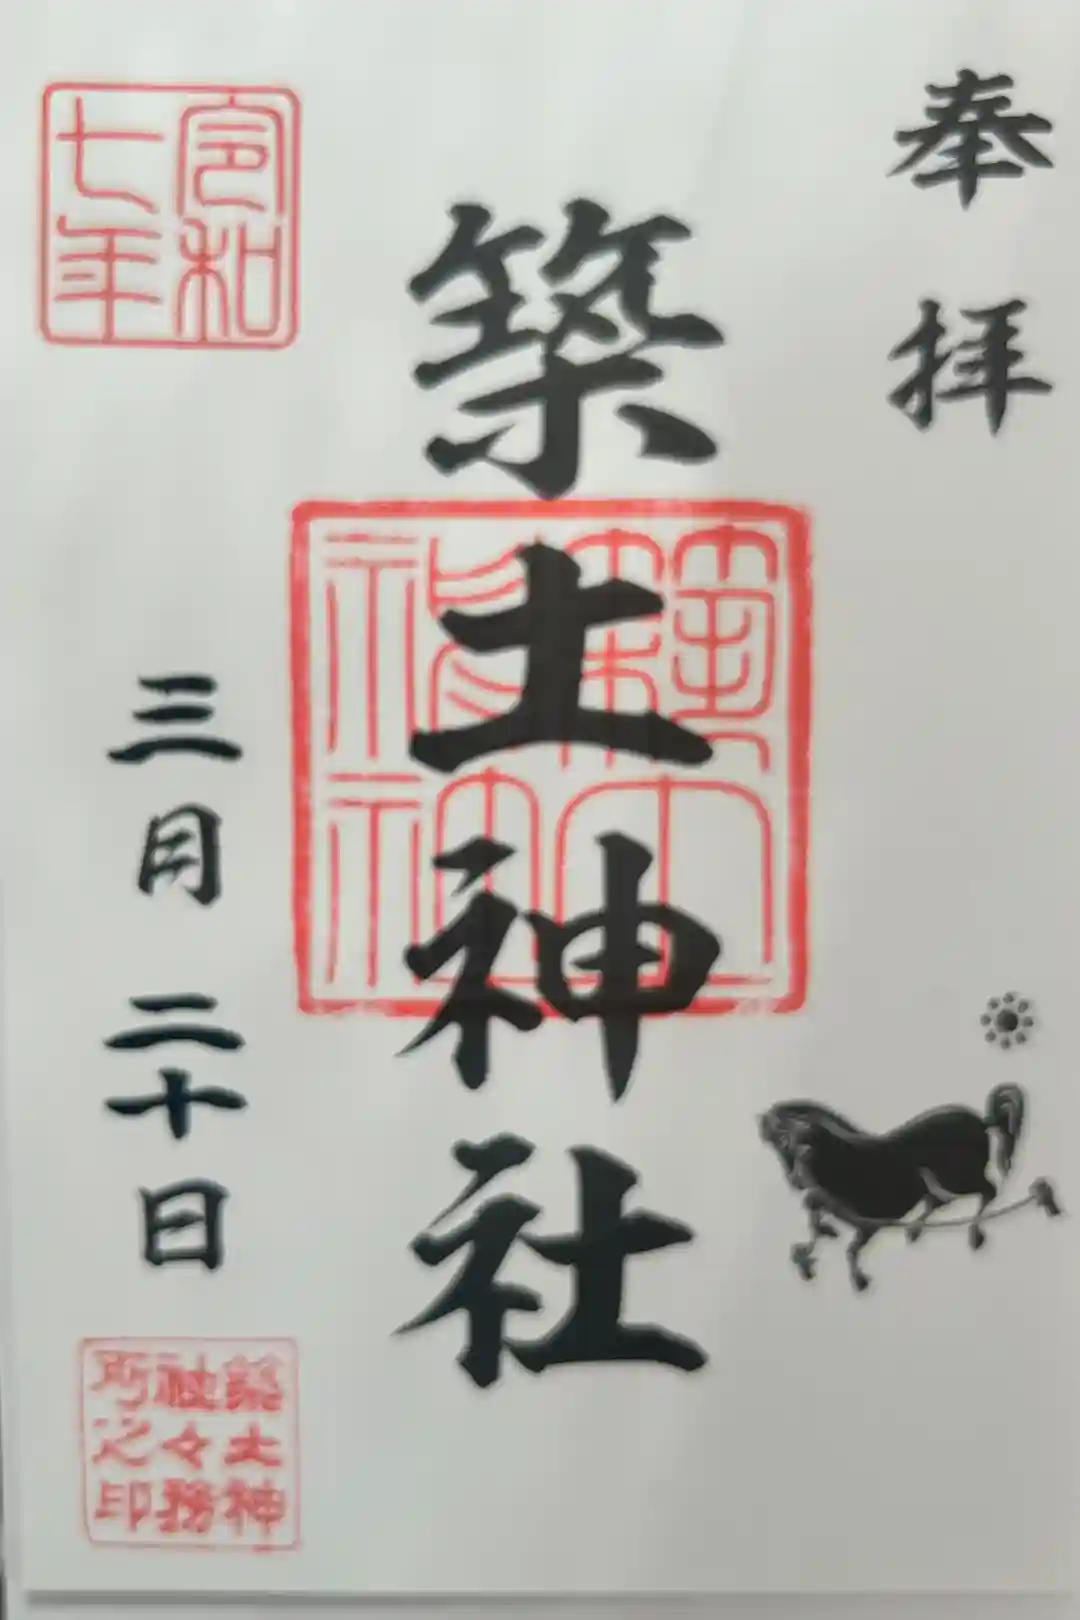 奉拝
築土神社
令和
七年
三月二十日
築土神
社々務
所之印